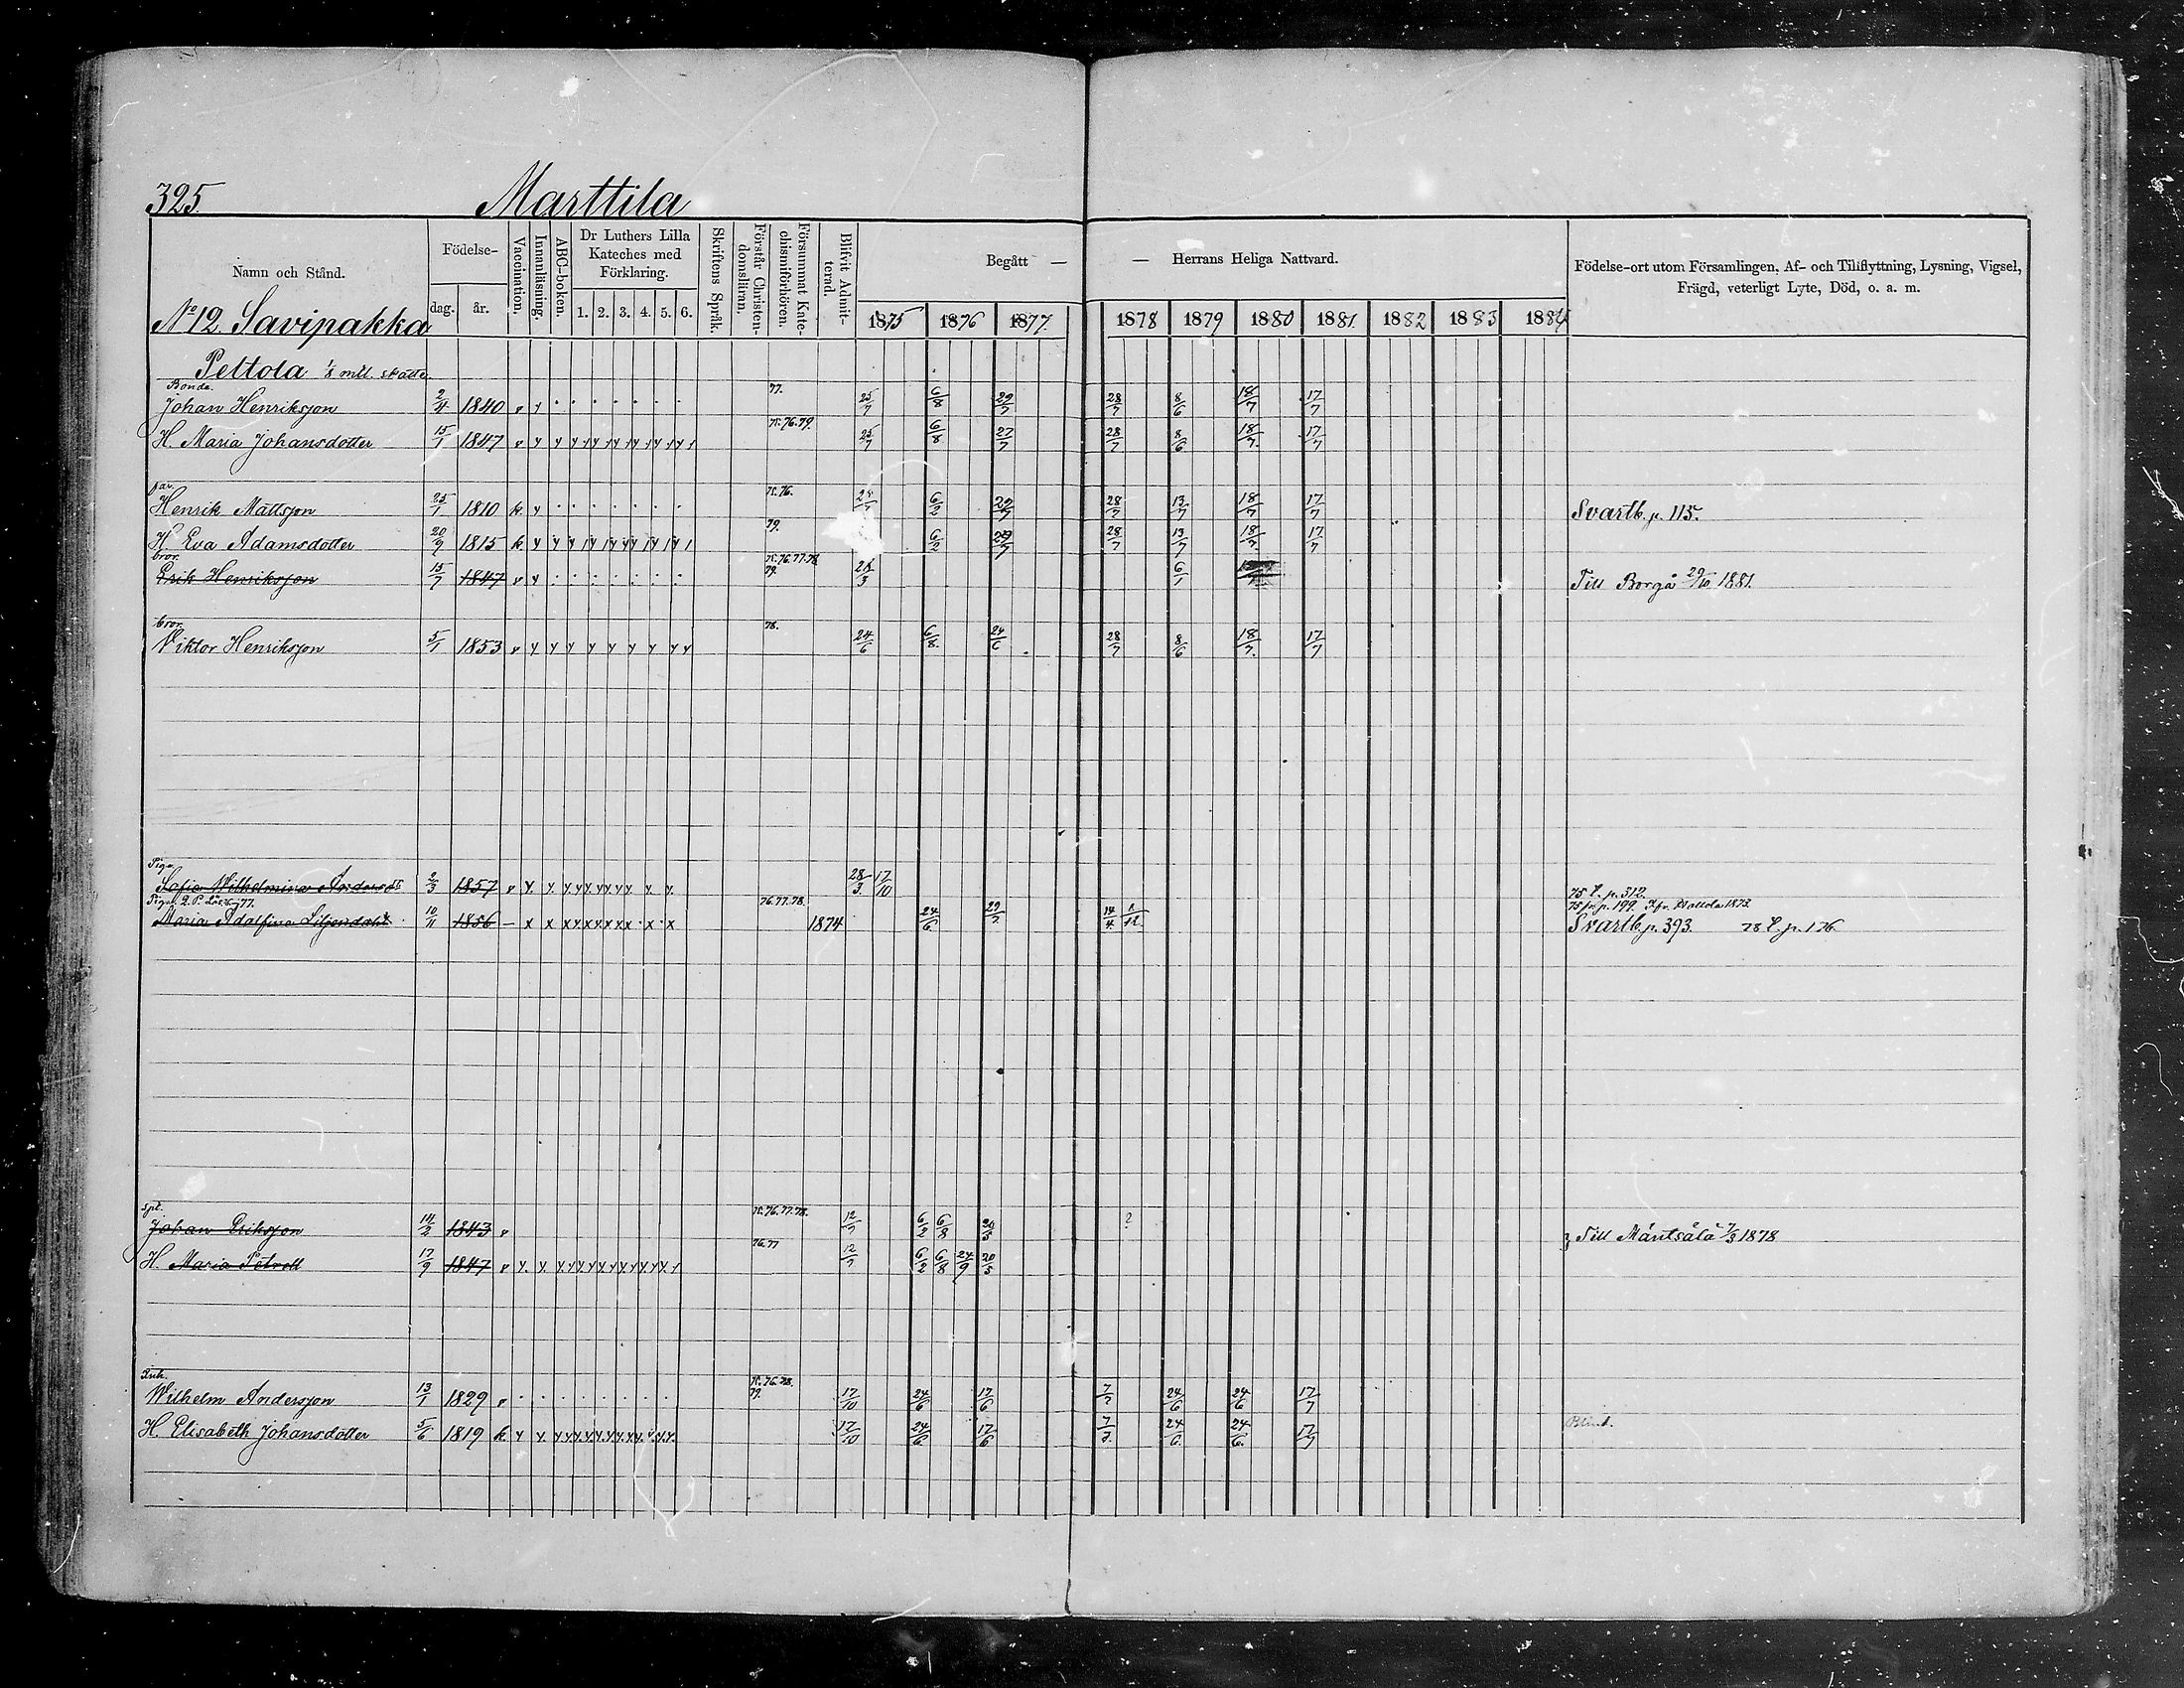 325. Marttila
Namn och Stånd. Födelse- dag. år. Vaccination. Innanläsning. ABC-boken. Dr Luthers Lilla Kateches med Förklaring. 1. 2. 3. 4. 5. 6. Skriftens Språk. Förstår Christendomsläran. Försummat Katechismiförhören. Blifvit Admitterad. Begått — — Herrans Heliga Nattvard. Födelse-ort utom Församlingen, Af- och Tillflyttning, Lysning, Vigsel, Frägd, veterligt Lyte, Död, o. a. m.
1875 1876 1877 1878 1879 1880 1881 1882 1883 1884
No 12 Savipakka
Pettola 1/8 mtl. skatte.
Bonde.
Johan Henriksson 2/4 1840 v y 77. 25/7 6/8 29/7 28/7 8/6 18/7 17/7
H. Maria Johansdotter 15/1 1847 v y y y y y y y y 75.76.79. 25/7 6/8 27/7 28/7 8/6 18/7 17/7
far.
Henrik Mattsson 25/1 1810 k. y 75.76. 6/2 29/7 28/7 13/7 18/7 17/7 Svartb. p. 115.
H. Eva Adamsdotter 20/9 1815 k y y y y y y y y 79. 6/2 29/7 28/7 13/7 18/7 17/7
bror.
Erik Henriksson 15/7 1847 v y 75.76.77.78. 79. 28/3 6/1 Till Borgå 29/10 1881.
bror
Viktor Henriksson 5/1 1853 v y y y y y y y y 78. 24/6 6/8. 24/6 28/7 8/6 18/7. 17/7
Piga
Sofia Wilhelmina Andersdtt 2/3 1857 v y. y. y y y y y y 28/3. 17/10 75 L. p. 312.
Piga
Maria Adolfina Liljendahl 10/11 1856 — x x x x x x x x 76.77.78. 1874 24/6. 29/7 14/4 75 fr. p. 199. Svartb. p. 393. 78 L. p. 176
spl.
Johan Eriksson 14/2 1843 v 75.76.77.78. 12/7 6/2 6/8 20/5 ? } Till Mäntsälä 7/3 1878
H. Maria Petrell 17/9 1847 v y. y. y y y y y y 76.77 12/7 6/2 6/8 24/9 20/5
Inh.
Wilhelm Andersson 13/1 1829 v 75.76.78. 79. 17/10 24/6 17/6 7/7 24/6 24/6 17/7
H. Elisabeth Johansdotter 5/6 1819 k y y y y y y y y 17/10 24/6 17/6 7/7. 24/6. 24/6. 17/7 Blind.